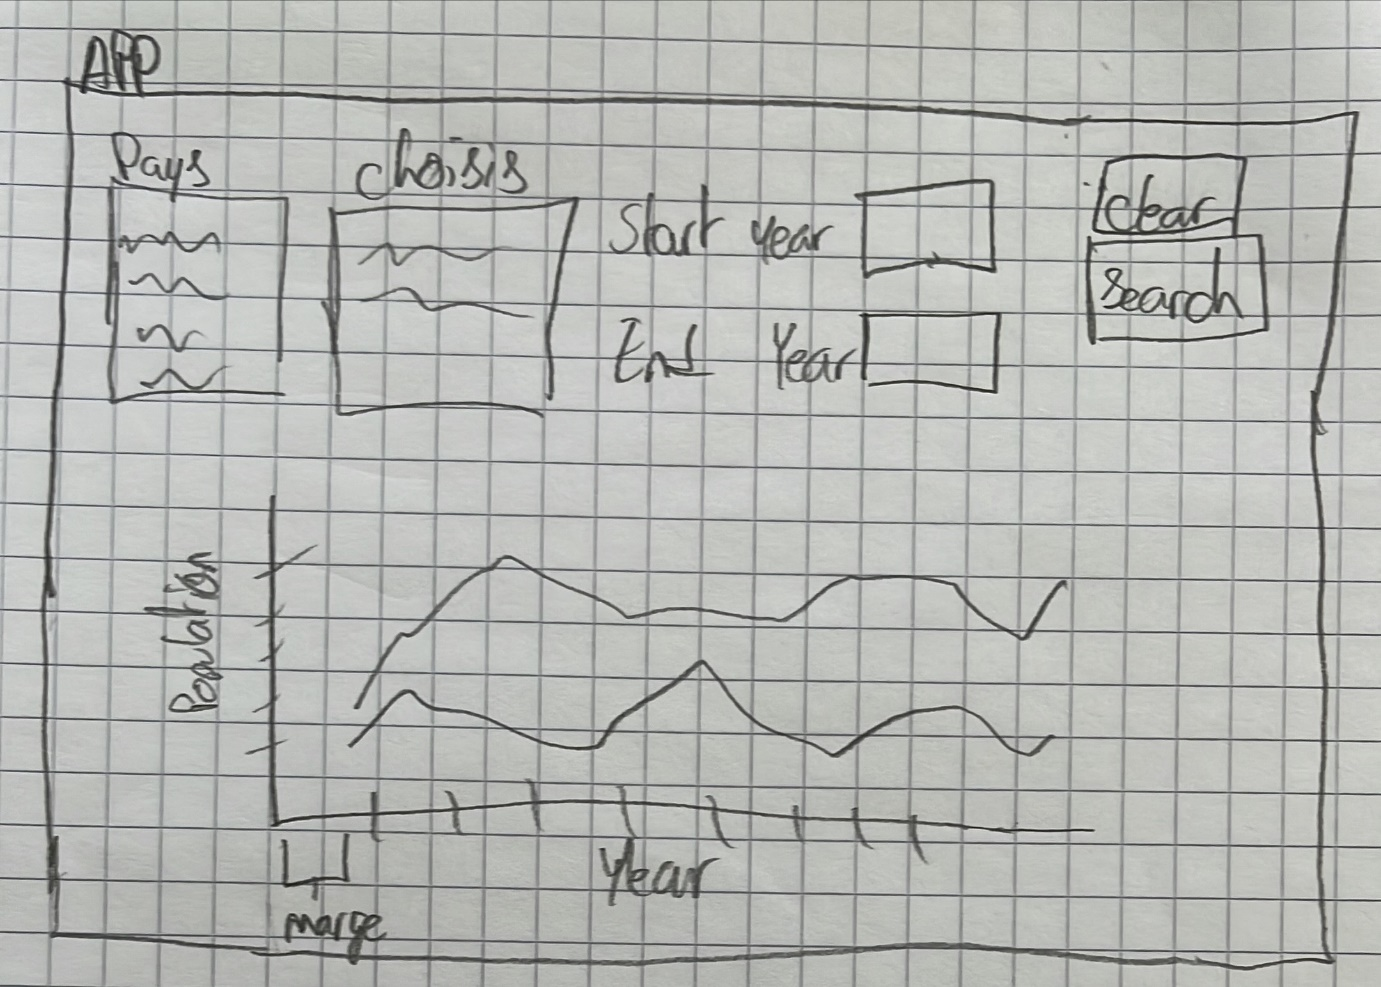 APP
Pays
choisis
Start year
End Year
Clear
Search
Population
Year
marge